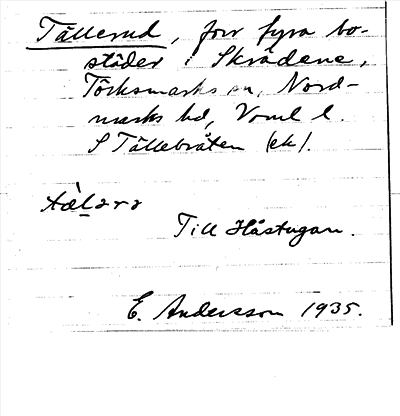 Tällerud, förr fyra bo-
städer i Skrådene,
Töcksmarks sn, Nord-
marks hd, Vrml l.
S Tällebråten (ek).
Till Håstugan.
E. Andersson 1935.